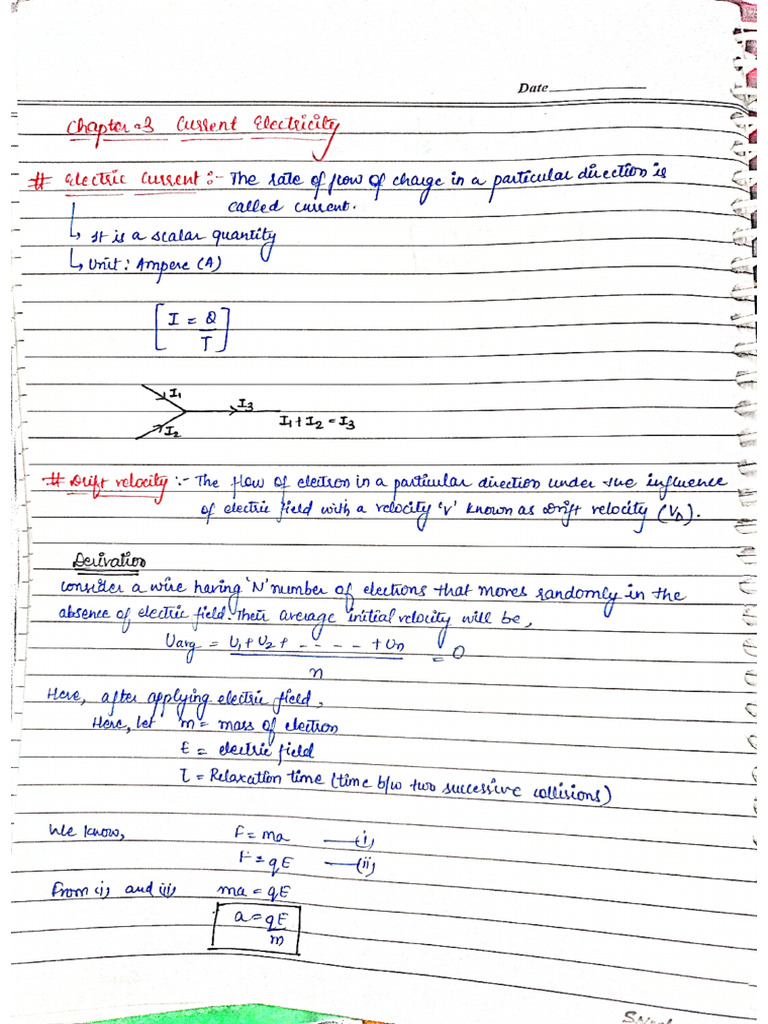 Date
Chapter-3 Current Electricity
# Electric Current :- The rate of flow of charge in a particular direction is
called current.
↳ It is a scalar quantity
↳ Unit : Ampere (A)
[I = Q/T]
I₁
I₃
I₂
I₁ + I₂ = I₃
# Drift velocity :- The flow of electron in a particular direction under the influence
of electric field with a velocity 'v' known as Drift velocity (V_D).
Derivation
Consider a wire having 'N' number of electrons that moves randomly in the
absence of electric field. Their average initial velocity will be,
Uavg = (U₁ + U₂ + - - - - - + Un)/n = 0
Here, after applying electric field,
Here, let m = mass of electron
E = electric field
τ = Relaxation time (time b/w two successive collisions)
We know, F = ma —(i)
F = qE —(ii)
From (i) and (ii) ma = qE
a = qE/m